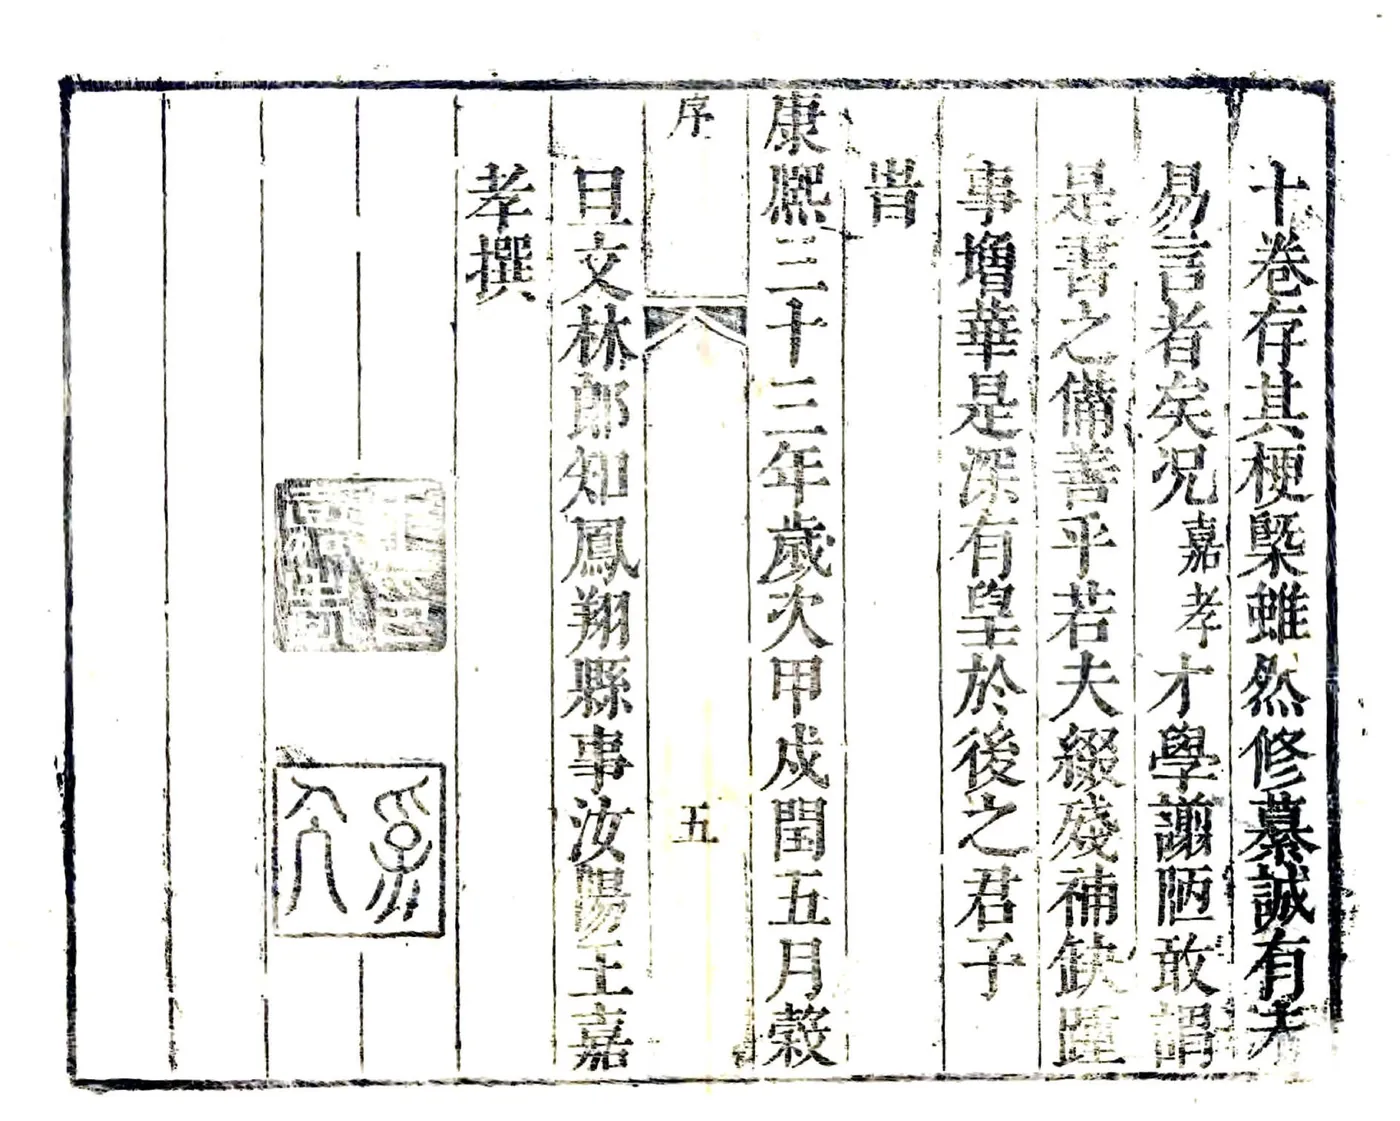 十卷存其梗槩雖然修纂誠有未
易言者矣况嘉孝才學譾陋敢謂
是書之備善乎若夫綴殘補缺踵
事增華是深有望於後之君子
旹
康熙三十三年歲次甲戌閏五月穀
序
五
旦文林郎知鳳翔縣事汝陽王嘉
孝撰